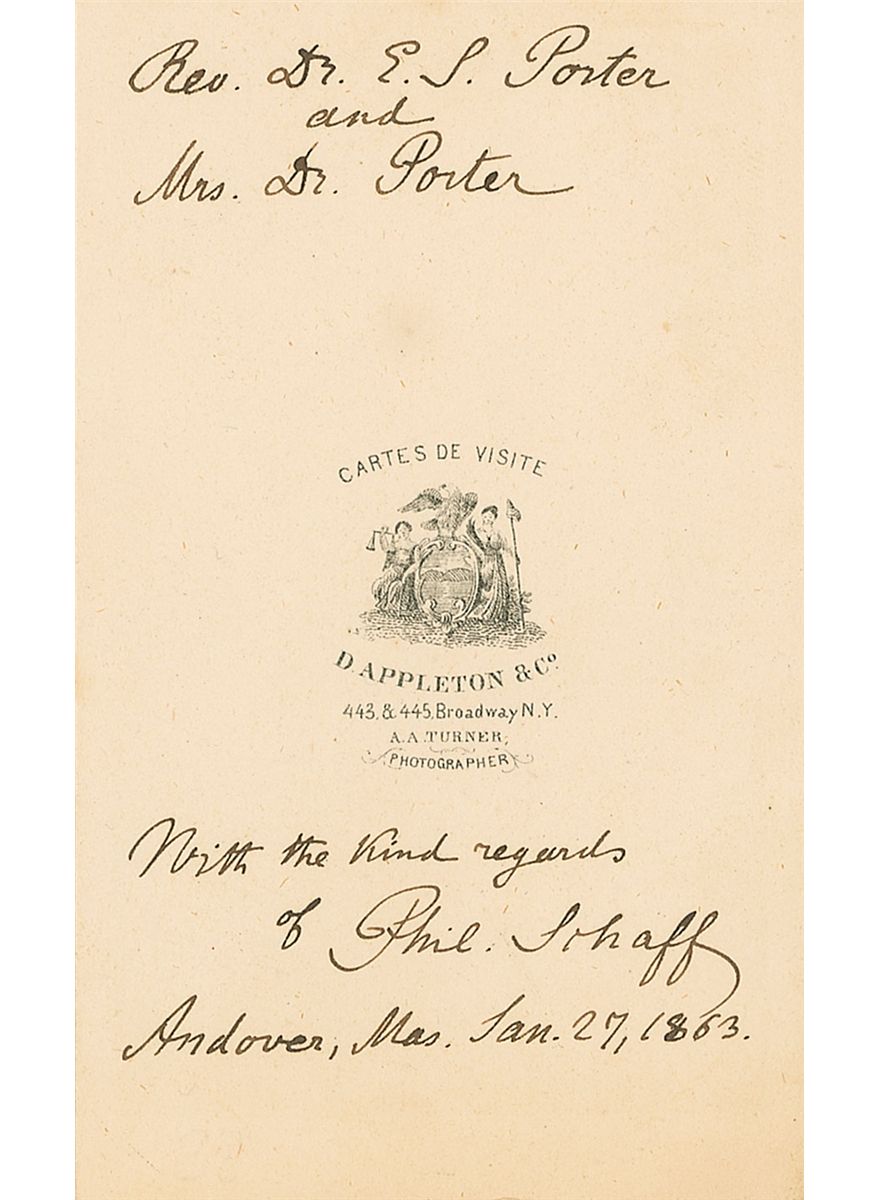 Rev. Dr. E. S. Porter
and
Mrs. Dr. Porter
CARTES DE VISITE
D. APPLETON & Co.
443, & 445, Broadway N.Y.
A. A. TURNER,
PHOTOGRAPHER
With the kind regards
of Phil. Schaff
Andover, Mas. Jan. 27, 1863.